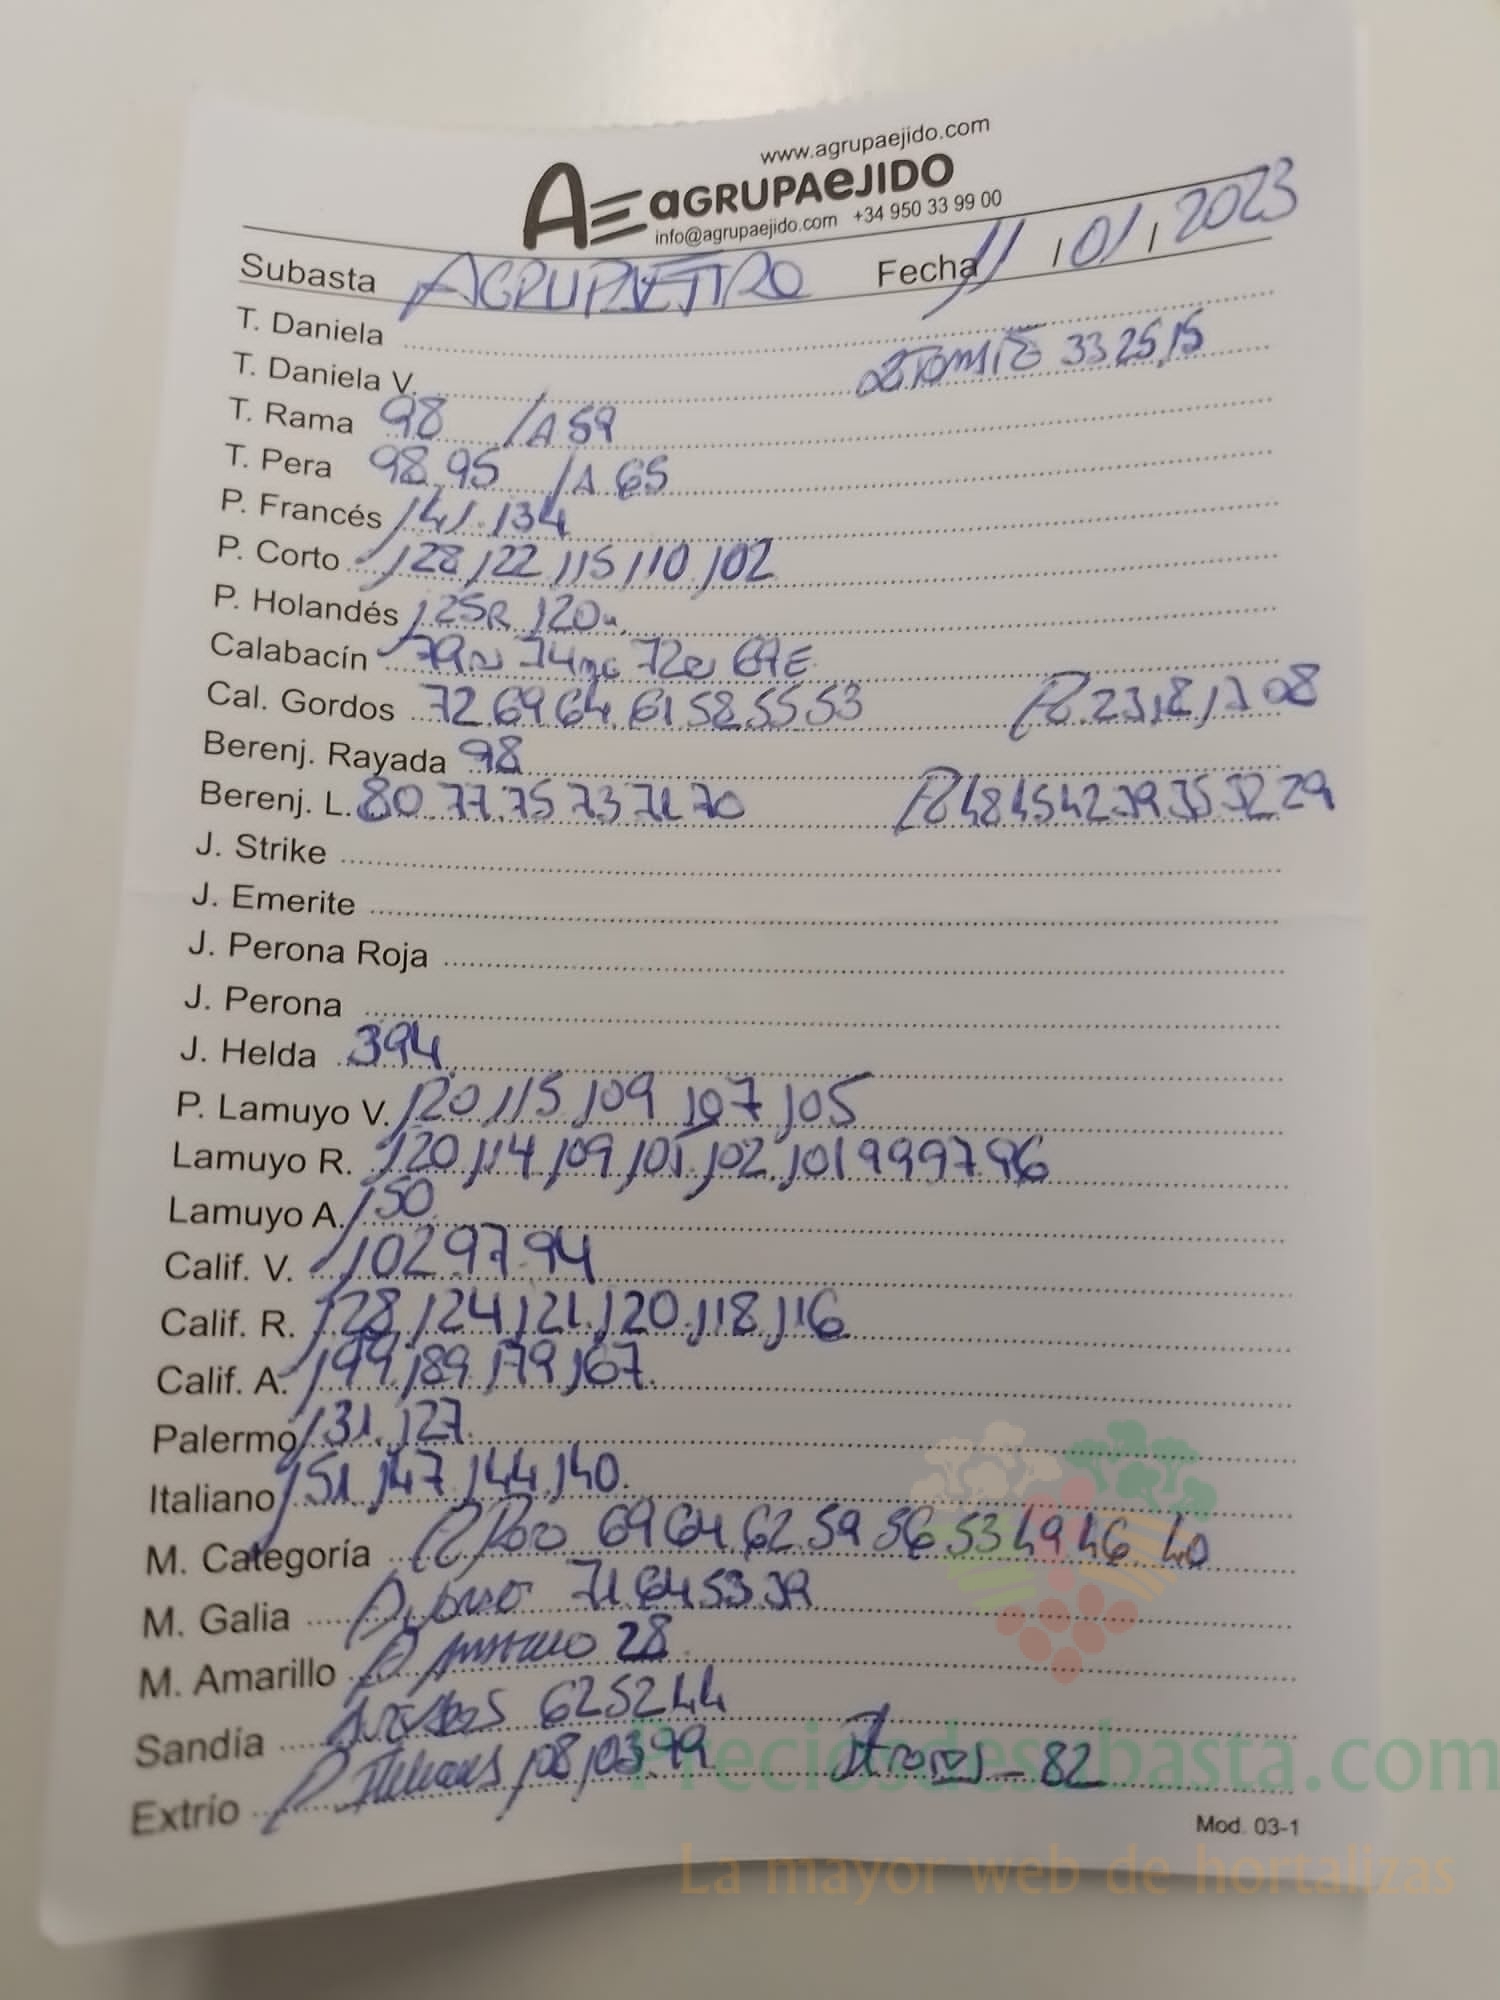 www.agrupaejido.com
AGRUPAEJIDO
info@agrupaejido.com +34 950 33 99 00
Subasta AGRUPAEJIDO Fecha 11 / 01 / 2023
T. Daniela
T. Daniela V. 33 25 15
T. Rama 98 /A 59
T. Pera 98 95 /A 65
P. Francés 141 134
P. Corto 128 122 115 110 102
P. Holandés 125R 120
Calabacín 79 74 72 69E
Cal. Gordos 72 69 64 61 58 55 53 P. 23 18 17 08
Berenj. Rayada 98
Berenj. L. 80 77 75 73 71 70 P 48 45 42 39 35 32 29
J. Strike
J. Emerite
J. Perona Roja
J. Perona
J. Helda 394
P. Lamuyo V. 120 115 109 107 105
Lamuyo R. 120 114 109 105 102 101 99 97 96
Lamuyo A. 150
Calif. V. 102 97 94
Calif. R. 128 124 121 120 118 116
Calif. A. 199 189 179 167
Palermo 131 127
Italiano 151 147 144 140
M. Categoría 69 64 62 59 56 53 49 46 40
M. Galia 71 64 53 39
M. Amarillo 28
Sandía 62 52 44
Extrío 108 103 99 82
Preciosdesubasta.com
Mod. 03-1
La mayor web de hortalizas